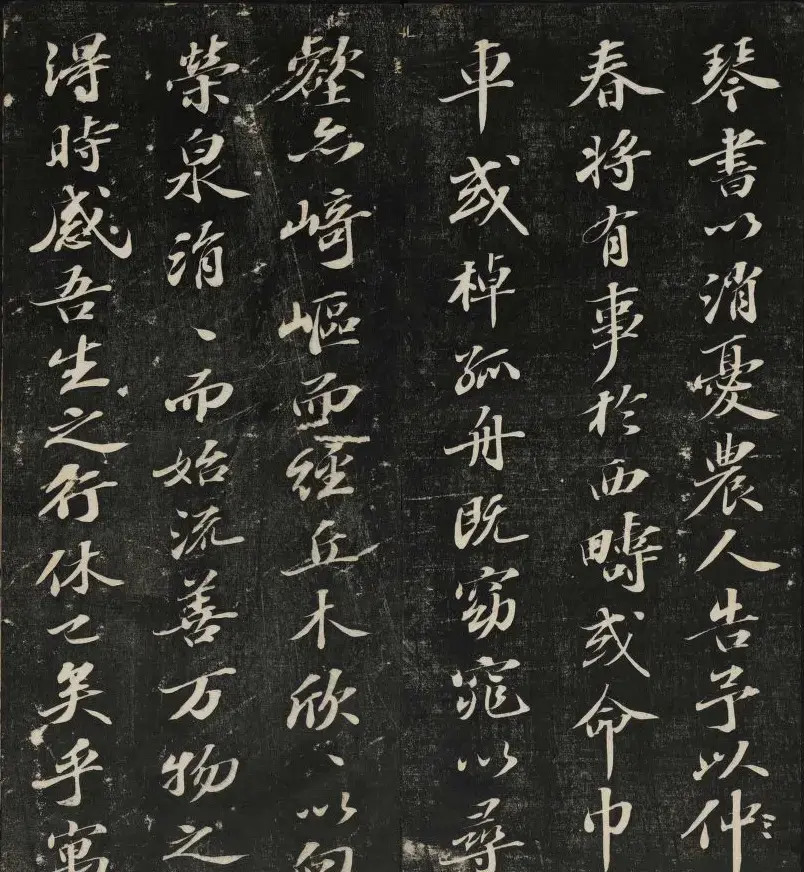 琴書以消憂農人告予以仲
春將有事於西疇或命巾
車或棹孤舟既窈窕以尋
壑亦崎嶇而經丘木欣〻以向
榮泉涓〻而始流善万物之
得時感吾生之行休已矣乎寓